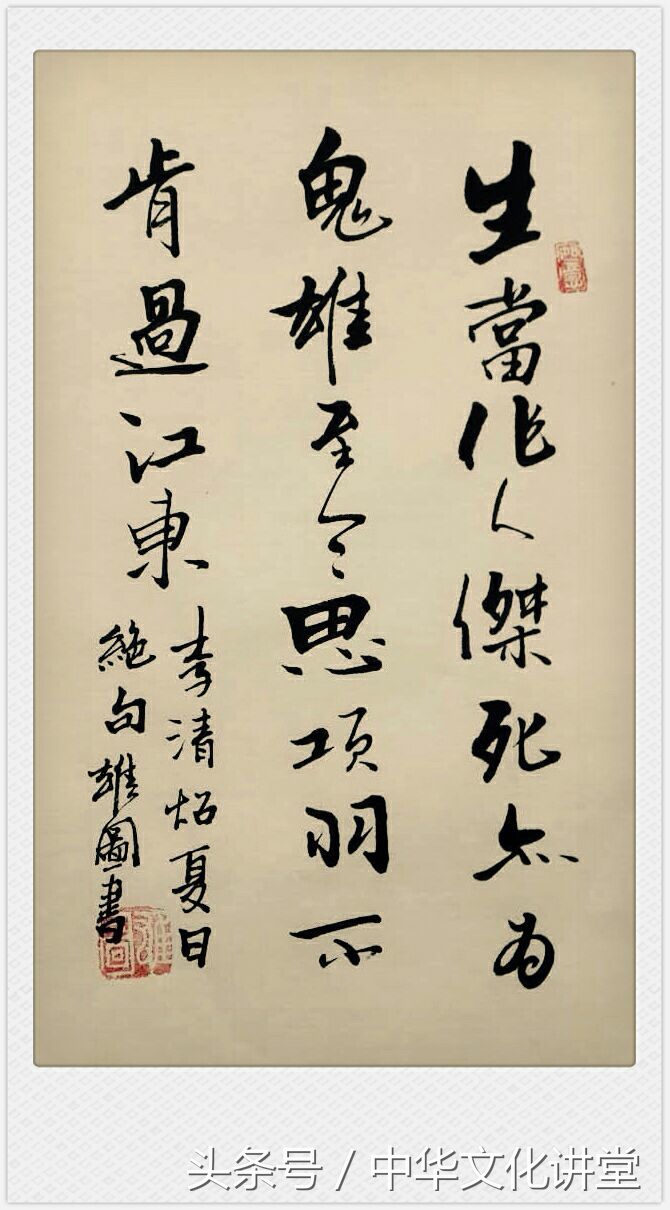 生當作人傑死亦为
鬼雄至今思項羽不
肯過江東
李清炤夏日
絶句雄圖書
头条号 / 中华文化讲堂